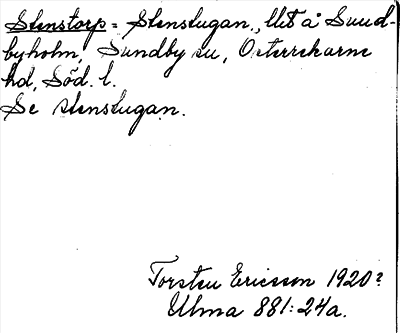 Stenstorp = Stenstugan., lht å Sund-
byholm, Sundby sn, Österrekarne
hd, Söd. l.
Se Stenstugan.
Torsten Ericsson 1920?
Ulma 881:24a.